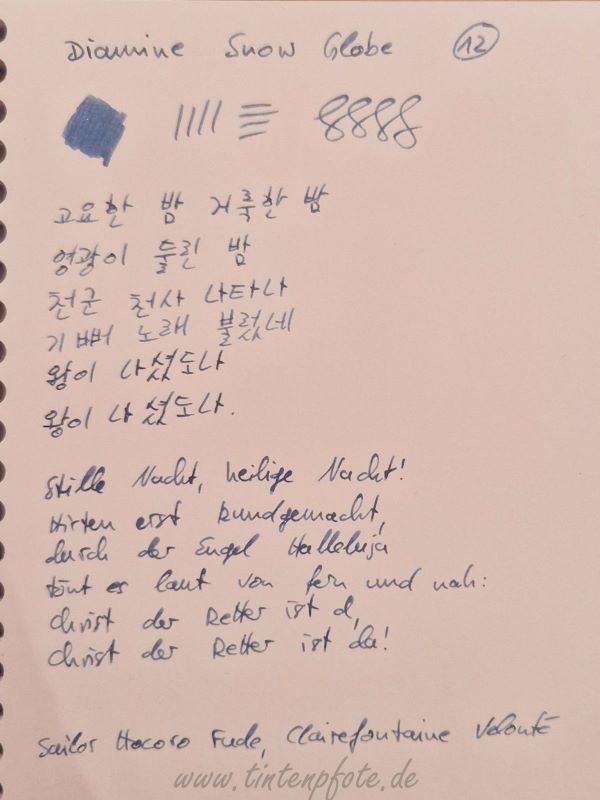 Diamine Snow Globe 12
고요한 밤 거룩한 밤
영광이 둘린 밤
천군 천사 나타나
기뻐 노래 불렀네
왕이 나셨도나
왕이 나셨도나.
Stille Nacht, heilige Nacht!
Hirten erst kundgemacht,
durch der Engel Halleluja
tönt es laut von fern und nah:
Christ der Retter ist d,
Christ der Retter ist da!
Sailor Hocoro Fude, Clairefontaine Velouté
www.tintenpfote.de